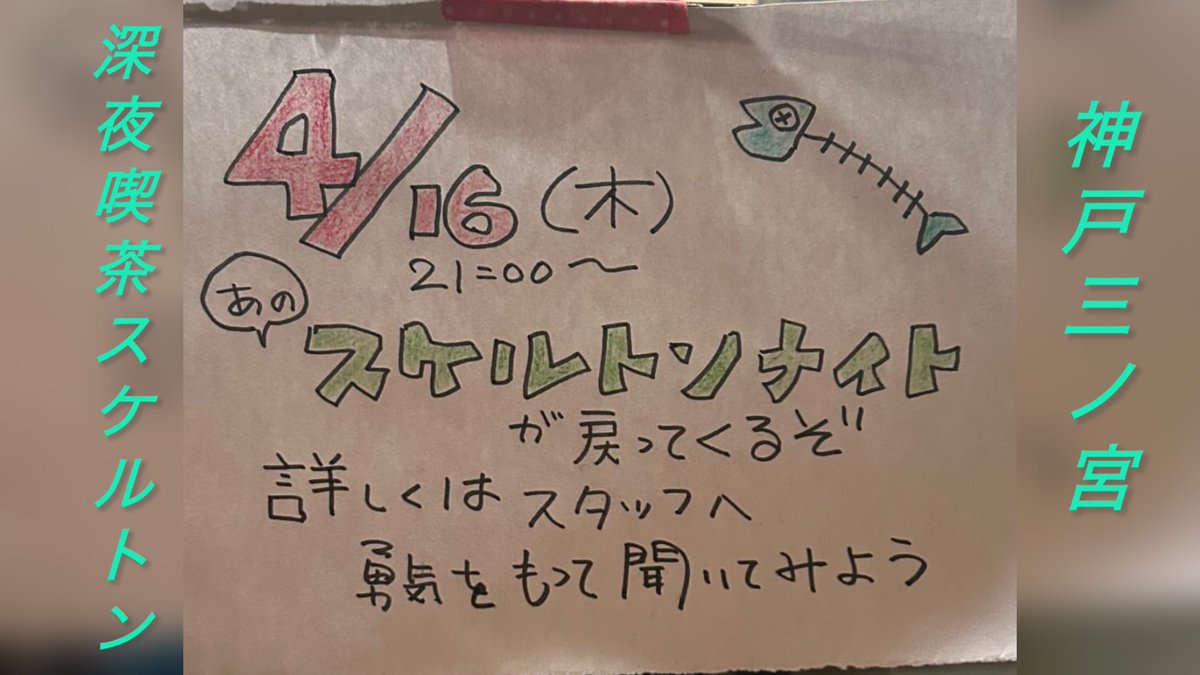 深夜喫茶スケルトン
神戸三ノ宮
4/16(木)
21=00〜
あの
スケルトンナイト
が戻ってくるぞ
詳しくはスタッフへ
勇気をもって聞いてみよう